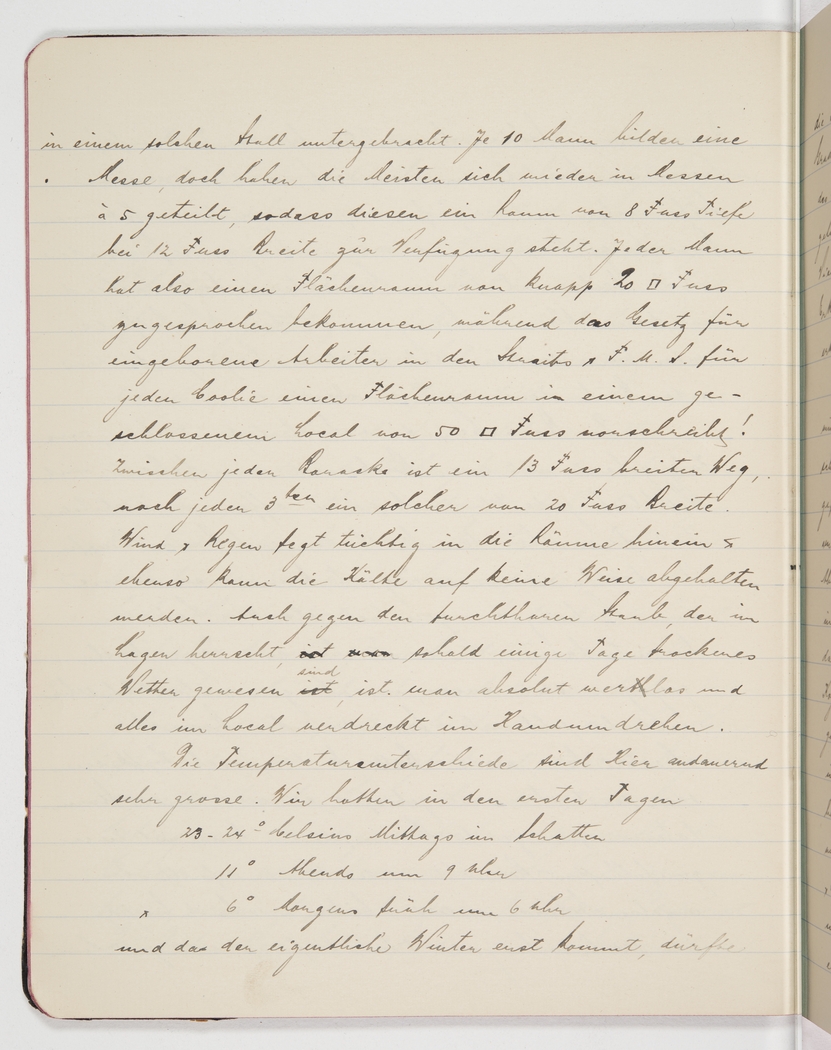 in einem solchen Stall untergebracht. Je 10 Mann bilden eine
Messe, doch haben die Meisten sich wieder in Messen
à 5 geteilt, sodass diesen ein Raum von 8 Fuss Tiefe
bei 12 Fuss Breite zur Verfügung steht. Jeder Mann
hat also einen Flächenraum von knapp 20 □ Fuss
zugesprochen bekommen, während das Gesetz für
eingeborene Arbeiter in den Straits & F. M. S. für
jeden Coolie einen Flächenraum in einem ge-
schlossenem Local von 50 □ Fuss vorschreibt!
Zwischen jeder Baracke ist ein 13 Fuss breiter Weg,
nach jeder 3ten ein solcher von 20 Fuss Breite.
Wind & Regen fegt tüchtig in die Räume hinein &
ebenso kann die Kälte auf keine Weise abgehalten
werden. Auch gegen den furchtbaren Staub, der im
Lagen herrscht, ist man sobald einige Tage trockenes
Wetter gewesen ist sind, ist man absolut wertlos und
alles im Local verdreckt im Handumdrehen.
Die Temperaturunterschiede sind Hier andauernd
sehr grosse. Wir hatten in den ersten Tagen
23-24° Celsius Mittags im Schatten
11° Abends um 9 Uhr
& 6° Morgens früh um 6 Uhr
und da der eigentliche Winter erst kommt, dürfte